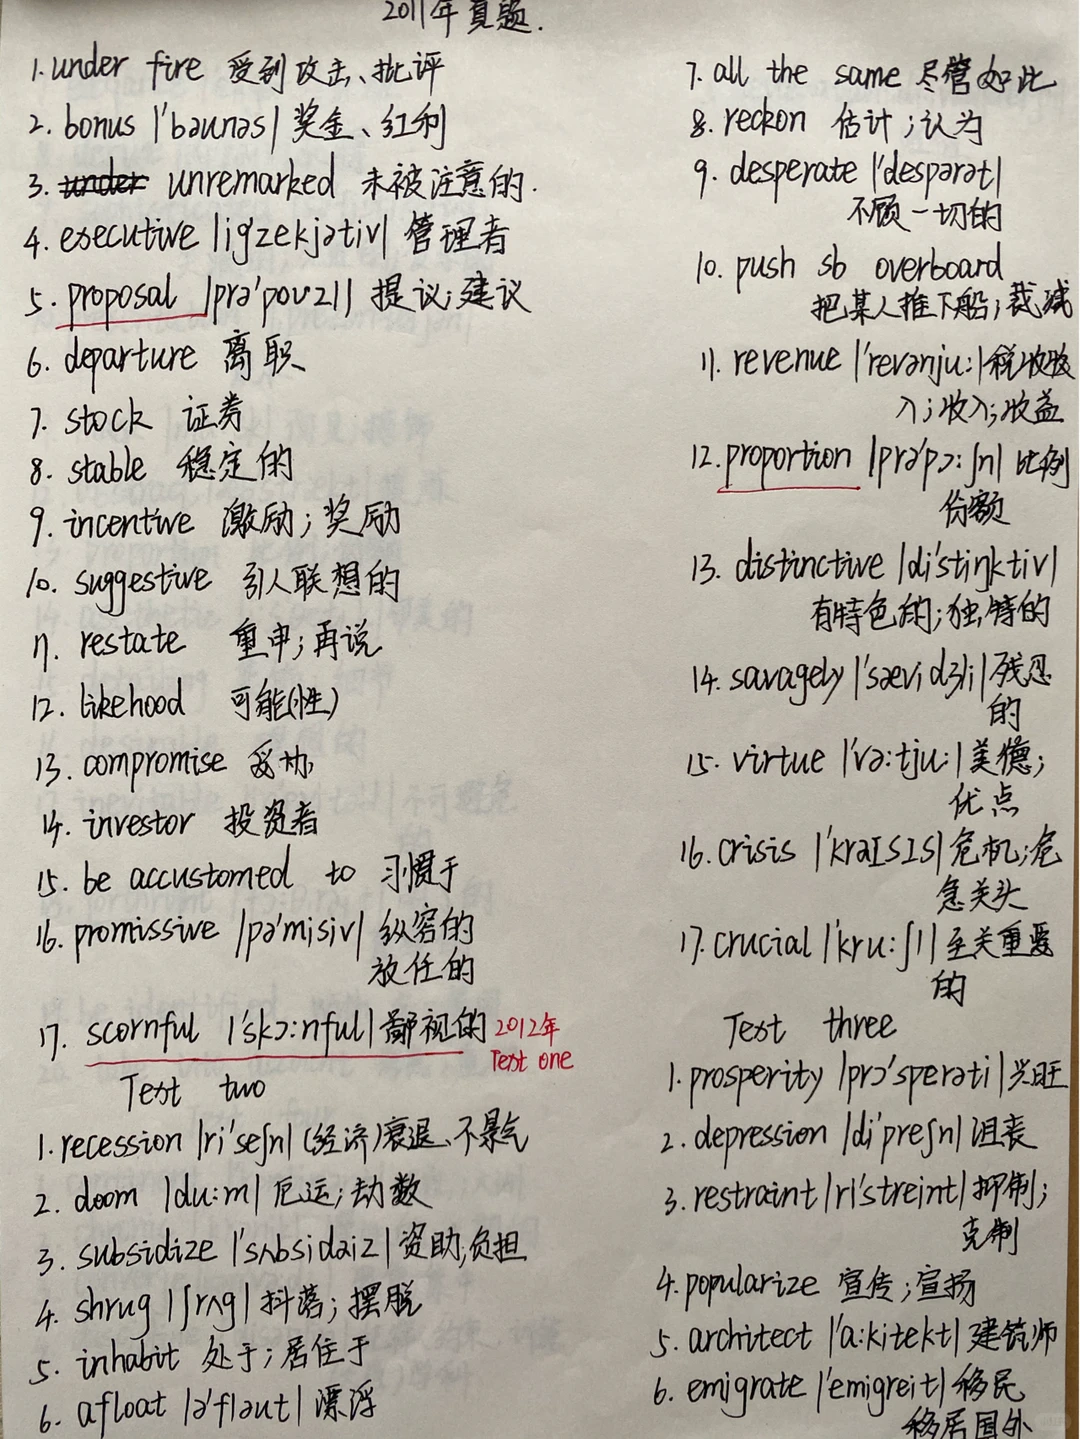 2011年真题.
1. under fire 受到攻击、批评
2. bonus |'bəunəs| 奖金、红利
3. under unremarked 未被注意的.
4. executive |ig'zekjətiv| 管理者
5. proposal |prə'pouzl| 提议;建议
6. departure 离职
7. stock 证券
8. stable 稳定的
9. incentive 激励;奖励
10. suggestive 引人联想的
11. restate 重申;再说
12. likehood 可能(性)
13. compromise 妥协
14. investor 投资者
15. be accustomed to 习惯于
16. promissive |pə'misiv| 纵容的
放任的
17. scornful |'skɔ:nful| 鄙视的 2012年
Test one
Test two
1. recession |ri'seʃn| (经济)衰退、不景气
2. doom |du:m| 厄运;劫数
3. subsidize |'sʌbsidaiz| 资助,负担
4. shrug |ʃrʌg| 抖落;摆脱
5. inhabit 处于;居住于
6. afloat |ə'fləut| 漂浮
7. all the same 尽管如此
8. reckon 估计;认为
9. desperate |'despərət|
不顾一切的
10. push sb overboard
把某人推下船;裁减
11. revenue |'revənju:| 税收收
入;收入;收益
12. proportion |prə'pɔ:ʃn| 比例
份额
13. distinctive |di'stiŋktiv|
有特色的;独特的
14. savagely |'sævidʒli| 残忍
的
15. virtue |'və:tju:| 美德;
优点
16. crisis |'kraɪsɪs| 危机;危
急关头
17. crucial |'kru:ʃl| 至关重要
的
Test three
1. prosperity |prɔ'sperəti| 兴旺
2. depression |di'preʃn| 沮丧
3. restraint |ri'streint| 抑制;
克制
4. popularize 宣传;宣扬
5. architect |'a:kitekt| 建筑师
6. emigrate |'emigreit| 移民
移居国外